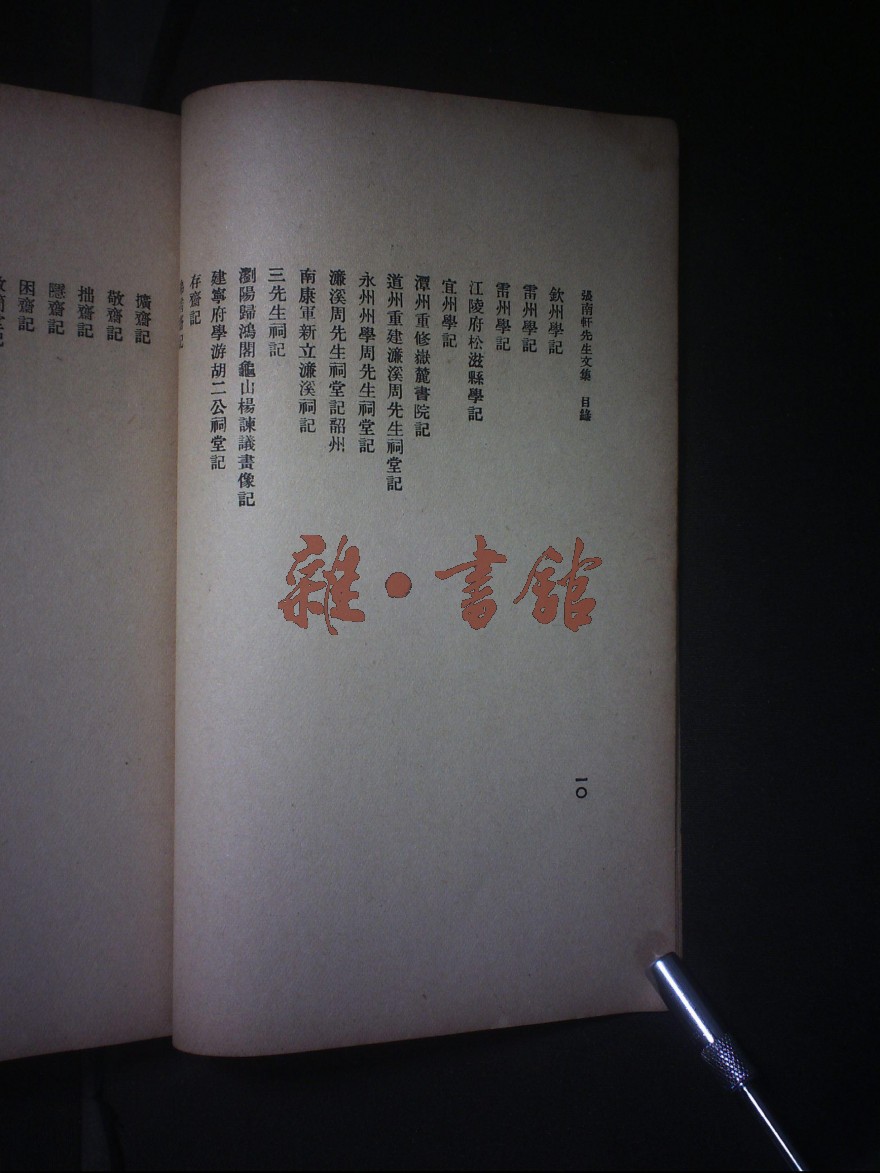 張南軒先生文集　目錄
一〇
欽州學記
雷州學記
雷州學記
江陵府松滋縣學記
宜州學記
潭州重修嶽麓書院記
道州重建濂溪周先生祠堂記
永州州學周先生祠堂記
濂溪周先生祠堂記韶州
南康軍新立濂溪祠記
三先生祠記
瀏陽歸鴻閣龜山楊諫議畫像記
建寧府學游胡二公祠堂記
存齋記
齋記
擴齋記
敬齋記
拙齋記
隱齋記
困齋記
雜·書館